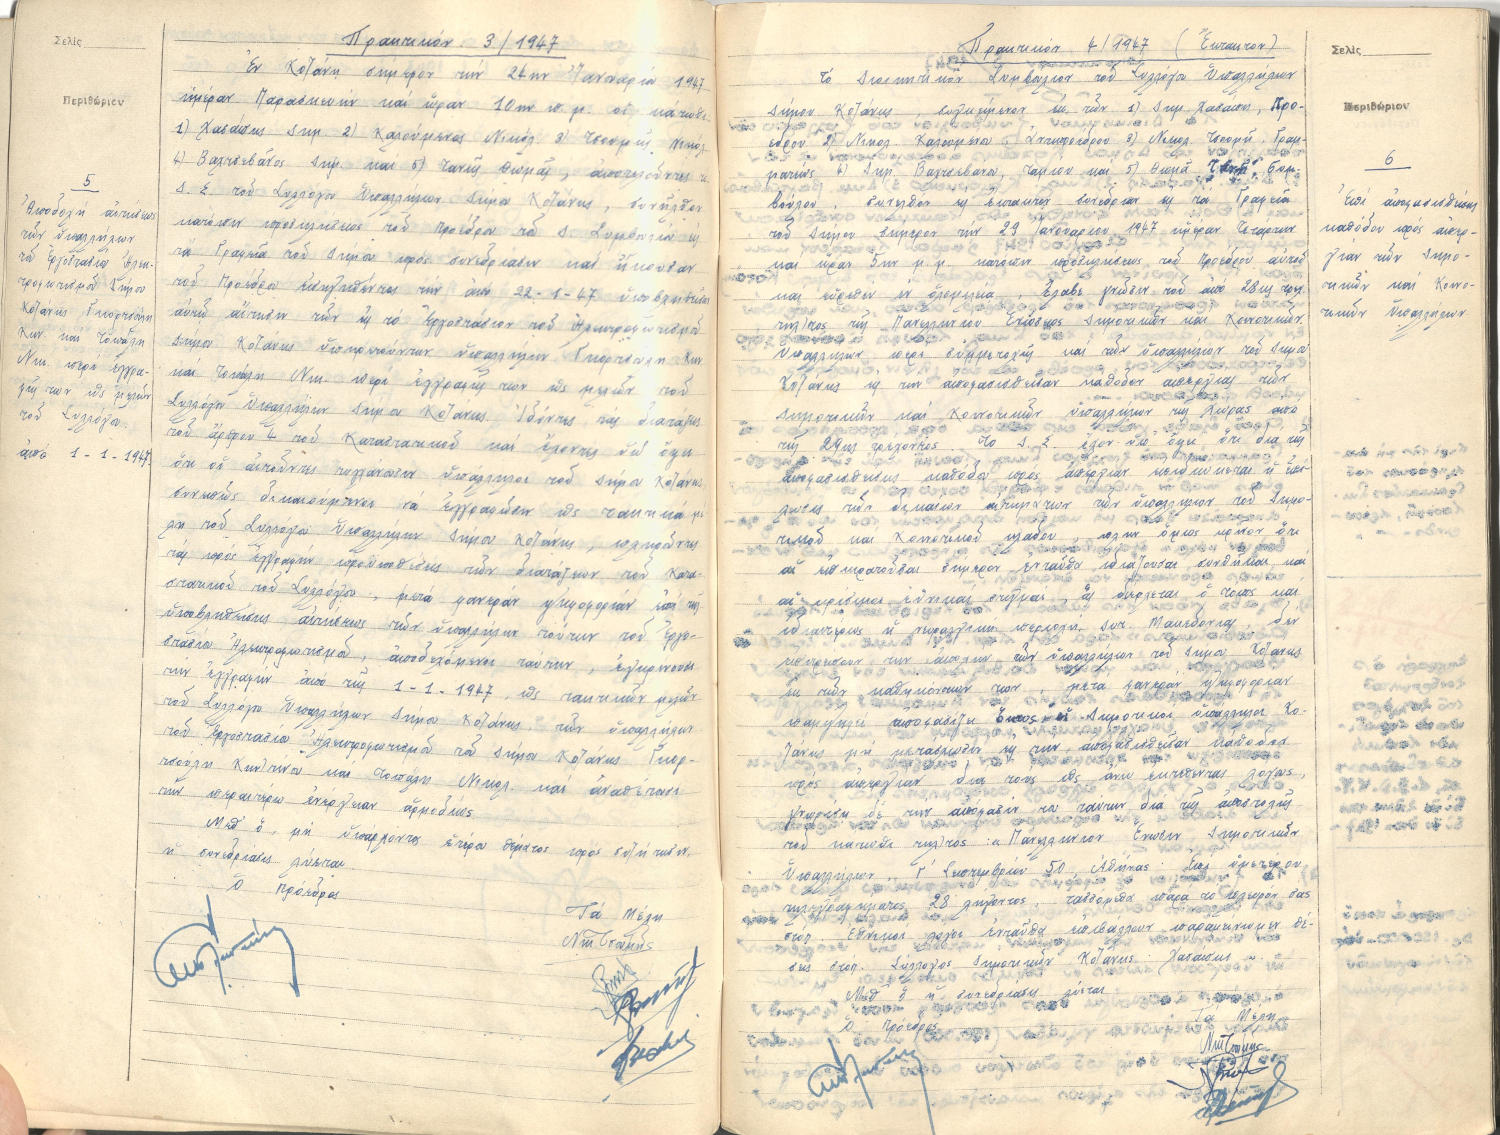 Σελὶς
Περιθώριον
5
Ἀποδοχὴ αἰτήσεως
τῶν ὑπαλλήλων
τοῦ Ἐργοστασίου Ἠλεκ-
τροφωτισμοῦ Δήμου
Κοζάνης
Κων. καὶ Τοπάλη
Νικ. περὶ ἐγγρα-
φῆς των ὡς μελῶν
τοῦ Συλλόγου
ἀπὸ 1-1-1947
Πρακτικὸν 3/1947
Ἐν Κοζάνῃ σήμερον τὴν 24ην Ἰανουαρίου 1947
ἡμέραν Παρασκευὴν καὶ ὥραν 10ην π.μ. οἱ κάτωθι
1) Χασάπης Δημ. 2) Καλούμενος Νικόλ. 3) Τσουμῆς Νικόλ.
4) Βαλτσεβάνος Δημ. καὶ 5) Τανῆς Θωμᾶς, ἀποτελοῦντες τὸ
Δ.Σ. τοῦ Συλλόγου Ὑπαλλήλων Δήμου Κοζάνης, συνῆλθον
κατόπιν προσκλήσεως τοῦ Προέδρου τοῦ Δ. Συμβουλίου εἰς
τὰ Γραφεῖα τοῦ Δήμου πρὸς συνεδρίασιν καὶ ἤκουσαν
τοῦ Προέδρου εἰσηγηθέντος τὴν ἀπὸ 22-1-47 ὑποβληθεῖσαν
αὐτῷ αἴτησιν τῶν εἰς τὸ Ἐργοστάσιον τοῦ Ἠλεκτροφωτισμοῦ
Δήμου Κοζάνης ὑπηρετούντων ὑπαλλήλων Κων.
καὶ Τοπάλη Νικ. περὶ ἐγγραφῆς των ὡς μελῶν τοῦ
Συλλόγου Ὑπαλλήλων Δήμου Κοζάνης. Ἰδόντες τὰς διατάξεις
τοῦ ἄρθρου 4 τοῦ Καταστατικοῦ καὶ ἔχοντες ὑπ' ὄψει
ὅτι οἱ αἰτοῦντες τυγχάνουσιν ὑπάλληλοι τοῦ Δήμου Κοζάνης
συνεπῶς δικαιούμενοι νὰ ἐγγραφῶσιν ὡς τακτικὰ μέ-
λη τοῦ Συλλόγου Ὑπαλλήλων Δήμου Κοζάνης, πληροῦντες
τὰς πρὸς ἐγγραφὴν προϋποθέσεις τῶν διατάξεων τοῦ Κατα-
στατικοῦ τοῦ Συλλόγου, μετὰ φανερὰν ψηφοφορίαν ἐπὶ τῆς
ὑποβληθείσης αἰτήσεως τῶν ὑπαλλήλων τούτων τοῦ Ἐργο-
στασίου Ἠλεκτροφωτισμοῦ, ἀποδεχόμενοι ταύτην, ἐγκρίνουσι
τὴν ἐγγραφὴν ἀπὸ τῆς 1-1-1947, ὡς τακτικῶν μελῶν
τοῦ Συλλόγου Ὑπαλλήλων Δήμου Κοζάνης, τῶν ὑπαλλήλων
τοῦ Ἐργοστασίου Ἠλεκτροφωτισμοῦ τοῦ Δήμου Κοζάνης
καὶ Τοπάλη Νικολ. καὶ ἀναθέτουσι
τὴν περαιτέρω ἐνέργειαν ἁρμοδίως
Μεθ' ὅ, μὴ ὑπάρχοντος ἑτέρου θέματος πρὸς συζήτησιν,
ἡ συνεδρίασις λύεται
Ὁ Πρόεδρος
Τὰ Μέλη
Πρακτικὸν 4/1947 (Ἔκτακτον)
Τὸ Διοικητικὸν Συμβούλιον τοῦ Συλλόγου Ὑπαλλήλων
Δήμου Κοζάνης, συγκείμενον ἐκ τῶν 1) Δημ. Χασάπη, Προ-
έδρου 2) Νικολ. Καλουμένου Ἀντιπροέδρου 3) Νικολ. Τσουμῆ, Γραμ-
ματέως 4) Δημ. Βαλτσεβάνου, Ταμίου καὶ 5) Θωμᾶ Τανῆ, Συμ-
βούλου, συνῆλθεν εἰς ἔκτακτον συνεδρίαν εἰς τὰ Γραφεῖα
τοῦ Δήμου σήμερον τὴν 29 Ἰανουαρίου 1947 ἡμέραν Τετάρτην
καὶ ὥραν 5ην μ.μ. κατόπιν προσκλήσεως τοῦ Προέδρου αὐτοῦ
καὶ εὑρεθὲν ἐν ὁλομελείᾳ, ἔλαβε γνῶσιν τοῦ ἀπὸ 28ης τρέχ.
τηλ/τος τῆς Πανελληνίου Ἑνώσεως Δημοτικῶν καὶ Κοινοτικῶν
Ὑπαλλήλων περὶ συμμετοχῆς καὶ τῶν ὑπαλλήλων τοῦ Δήμου
Κοζάνης εἰς τὴν ἀποφασισθεῖσαν κάθοδον ἀπεργίας τῶν
Δημοτικῶν καὶ Κοινοτικῶν ὑπαλλήλων τῆς χώρας ἀπὸ
τῆς 29ης τρέχοντος. Τὸ Δ.Σ. ἔχον ὑπ' ὄψει ὅτι διὰ τῆς
ἀποφασισθείσης καθόδου πρὸς ἀπεργίαν ἐπιδιώκεται ἡ ἐπί-
λυσις τῶν δικαίων αἰτημάτων τῶν ὑπαλλήλων τοῦ Δημο-
τικοῦ καὶ Κοινοτικοῦ κλάδου, πλὴν ὅμως κρῖνον ὅτι
αἱ ἐπικρατοῦσαι σήμερον ἐνταῦθα ἰδιάζουσαι συνθῆκαι καὶ
αἱ κρίσιμοι ἐθνικαὶ στιγμαί, ἃς διέρχεται ὁ τόπος καὶ
ἰδιαιτέρως ἡ νευραλγικὴ περιοχὴ Δυτ. Μακεδονίας, δὲν
ἐπιτρέπουν τὴν ἀποχὴν τῶν ὑπαλλήλων τοῦ Δήμου Κοζάνης
ἐκ τῶν καθηκόντων των, μετὰ φανερὰν ψηφοφορίαν
παμψηφεὶ ἀποφασίζει ὅπως οἱ Δημοτικοὶ ὑπάλληλοι Κο-
ζάνης μὴ μετάσχωσιν εἰς τὴν ἀποφασισθεῖσαν κάθοδον
πρὸς ἀπεργίαν διὰ τοὺς ὡς ἄνω ἐκτεθέντας λόγους,
γνωρίσῃ δὲ τὴν ἀπόφασίν του ταύτην διὰ τῆς ἀποστολῆς
τοῦ κάτωθι τηλ/τος: «Πανελλήνιον Ἕνωσιν Δημοτικῶν
Ὑπαλλήλων, Γ' Σεπτεμβρίου 50, Ἀθήνας. Ἐπὶ ὑμετέρου
τηλεγραφήματος 28 λήγοντος, τασσόμεθα παρὰ τὸ πλευρόν σας
στόπ. Ἐθνικοὶ λόγοι ἐνταῦθα ἐπιβάλλουν παραμείνωμεν θέ-
σεις στόπ. Σύλλογος Δημοτικῶν Κοζάνης. Χασάπης».
Μεθ' ὃ ἡ συνεδρίασις λύεται
Ὁ Πρόεδρος
Τὰ Μέλη
Σελὶς
Περιθώριον
6
Περὶ ἀποφασισθείσης
καθόδου πρὸς ἀπερ-
γίαν τῶν Δημο-
τικῶν καὶ Κοινο-
τικῶν Ὑπαλλήλων